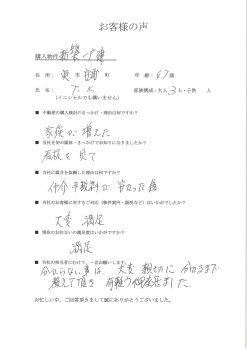 お客様の声
購入物件 新築一戸建
住 所: 市 町 年 齢: 67 歳
氏 名: T. K 家族構成:大人 3 人・子供 人
(イニシャルでも構いません)
■ 不動産の購入検討のきっかけ・理由は何ですか?
家族が増えた
■ 当社を初め経緯・きっかけでお知りになりましたか?
看板を見て
■ 当社に仲介を依頼した理由は何ですか?
仲介手数料が安かった為
■ 当社のお客様に対するご対応(物件案内・説明など)はいかがでしたか?
大変 満足
■ 現在のお住まいの満足度はいかがですか?
満足
■ 当社の担当者にむけて、一言お願いします。
分からない事は、大変 親切に 分かるまで
教えて頂き 有難う御座居ました
お忙しい中、ご回答頂きまして誠にありがとうございました。